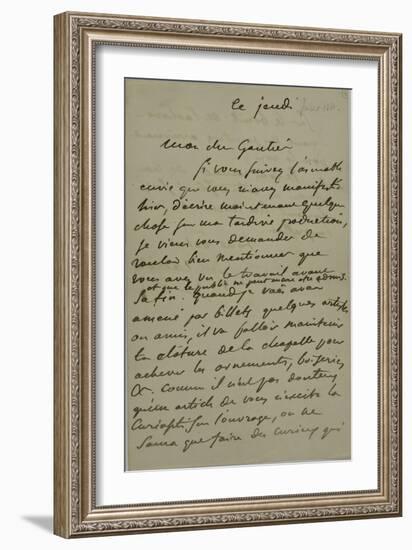 ce jeudi
Mon cher Gautier
Si vous suivez l'aimable
envie que vous m'avez manifesté
hier, d'écrire maintenant quelque
chose sur ma tardive production,
je viens vous demander de
vouloir bien mentionner que
vous avez vu le travail avant
et que le public ne peut encore être admis
sa fin. Quand j'aurai
amené par billets quelques artistes
ou amis, il va falloir maintenir
la clôture de la chapelle pour
achever les ornements, boiseries
&. Comme il n'est pas douteux
qu'un article de vous n'excite la
curiosité sur l'ouvrage, on ne
saura que faire des curieux qui